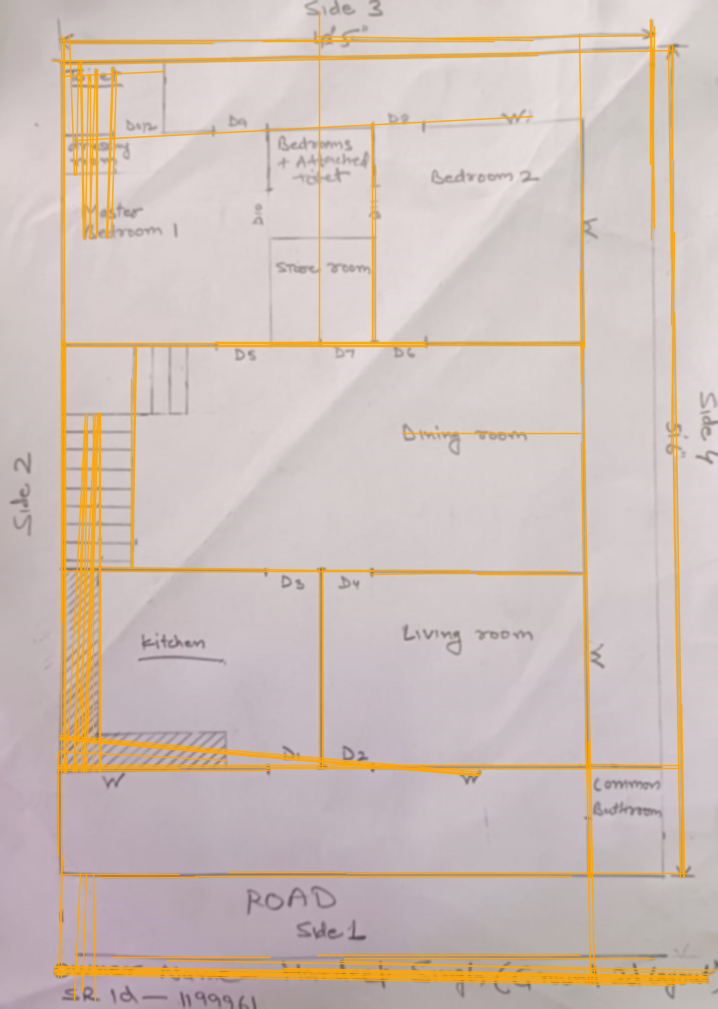 Side 3
D12
D9
D8
W
Bedrooms
+ Attached
toilet
Bedroom 2
Master
Bedroom 1
D10
W
Store room
D5
D7
D6
Side 4
Dining room
Side 2
D3
D4
Kitchen
Living room
W
D1
D2
W
W
Common
Bathroom
ROAD
Side 1
S.R. Id — 1199961